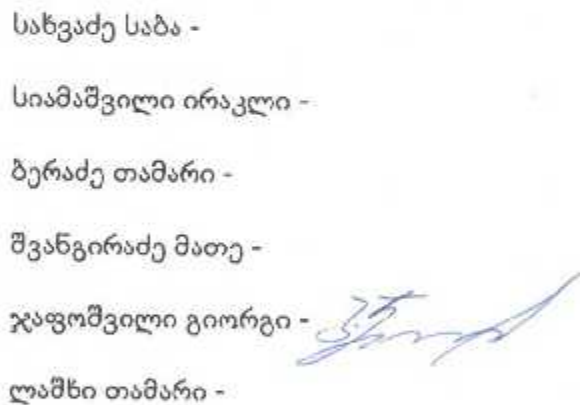 სახვაძე საბა -
სიამაშვილი ირაკლი -
ბერაძე თამარი -
შვანგირაძე მათე -
ჯაფოშვილი გიორგი -
ლაშხი თამარი -